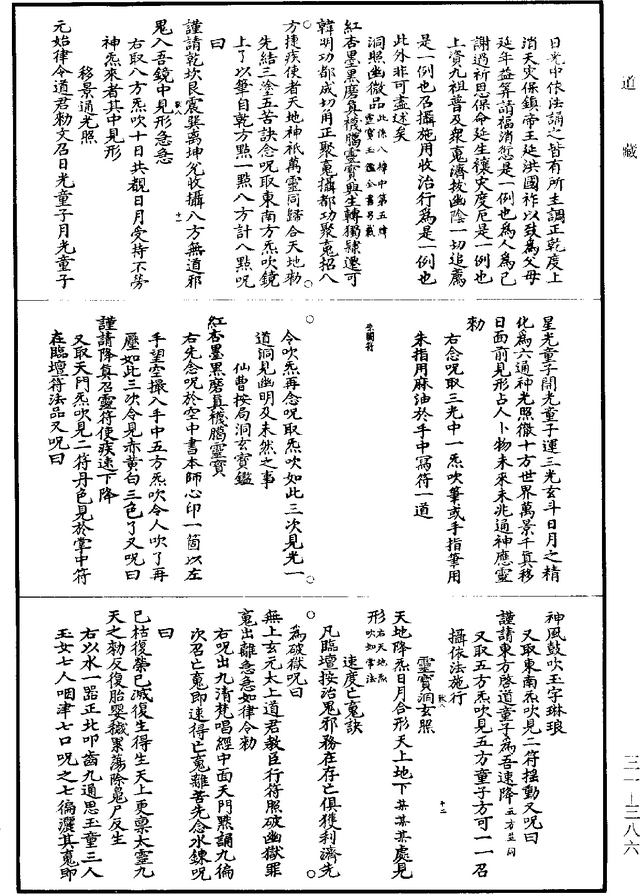 道藏
日光中依法誦之皆有所主調正乾度上
消天灾保鎮帝王延洪國祚以致為父母
延年益筭請福消愆是一例也為人為己
謝過祈恩保命延生禳灾度厄是一例也
上資九祖普及衆䰟濟拔幽陰一切追薦
是一例也召攝施用收治行為是一例也
此外非可盡述矣
洞照幽微品此係八牌中第五牌靈寶玉鑑全書另載
紅杏墨黑磨真韈騰靈寶與生轉獨隸還可
韓明功都成切用正聚䰟攝都功聚䰟招八
方捷疾使者天地神祇萬靈同歸合天地勑
先結三塗五苦訣念呪取東南方炁吹鏡
上了以筆自乾方點一點八方計八點呪
曰
謹請乾坎艮震巽离坤兊收攝八方無道邪
鬼入吾鏡中見形急急
右取八方炁吹十日共觀日月受持不勞
神炁來者其中見形
移景通光照
元始律令道君勑文召日光童子月光童子
星光童子開光童子運三光玄斗日月之精
化為六通神光照徹十方世界萬景千真移
日面前見形占人卜物未來未兆通神應靈
勑
右念呪取三光中一炁吹筆或手指筆用
朱指用麻油於手中寫符一道
令吹炁再念呪取炁吹如此三次見光一
道洞見幽明及未然之事
仙曹按局洞玄寶鑑
紅杏墨黑磨真韈騰靈寶
右先念呪於空中書本師心印一箇以左
手望空撮八手中五方炁吹令人吹了再
壓如此三次令見赤黄白三色了又呪曰
謹請降真召靈符使疾速下降
又取天門炁吹見二符丹色見於掌中符
在臨壇符法品又呪曰
神風鼓吹玉字琳琅
又取東南炁吹見二符揺動又呪曰
謹請東方啓道童子為吾速降五方並同
又取五方炁吹見五方童子方可一一召
攝依法施行
靈寶洞玄照
天地降炁日月合形天上地下某某某處見
形右天地炁吹如常法
速度亡䰟訣
凡臨壇按治鬼邪務在存亡俱獲利濟先
為破獄呪曰
無上玄元太上道君教臣行符照破幽獄罪
䰟出離急急如律令勑
右呪出九清梵唱經中面天門黙誦九徧
次召亡䰟即速得亡䰟離苦先念水鍊呪
曰
已枯復榮已滅復生得生天上更稟太靈九
天之勑反復胎嬰穢累蕩除鬼尸反生
右以水一器正北叩齒九通思玉童三人
玉女七人咽津七口呪之七徧灑其䰟即
三一—三八六